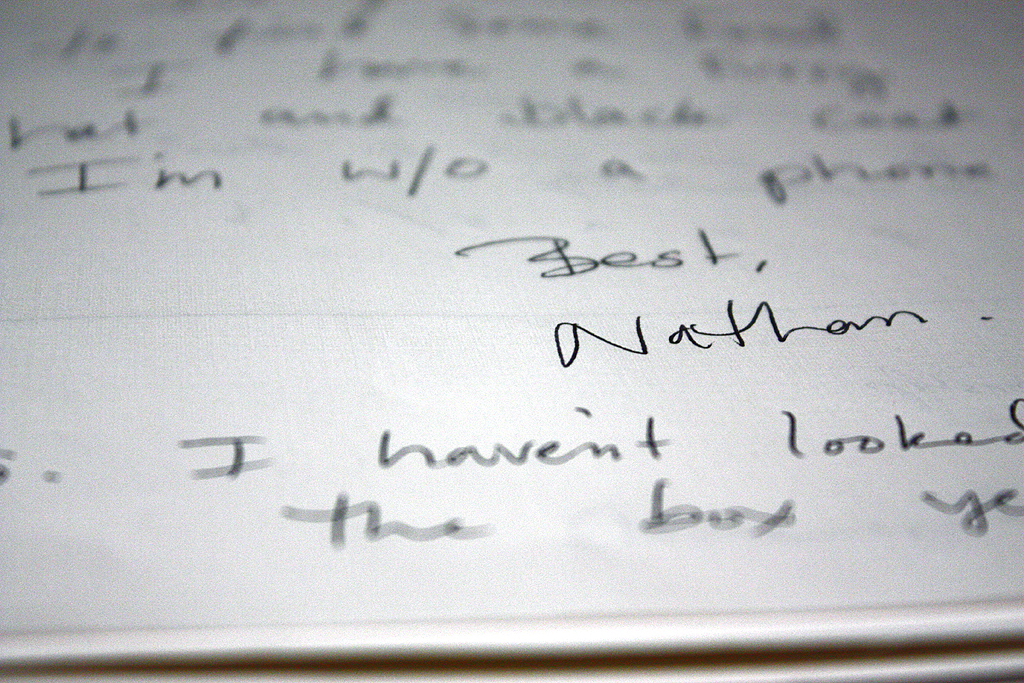 to find some food
I have a fuzzy
hat and black coat
I'm w/o a phone
Best,
Nathan.
s. I haven't looked
the box ye